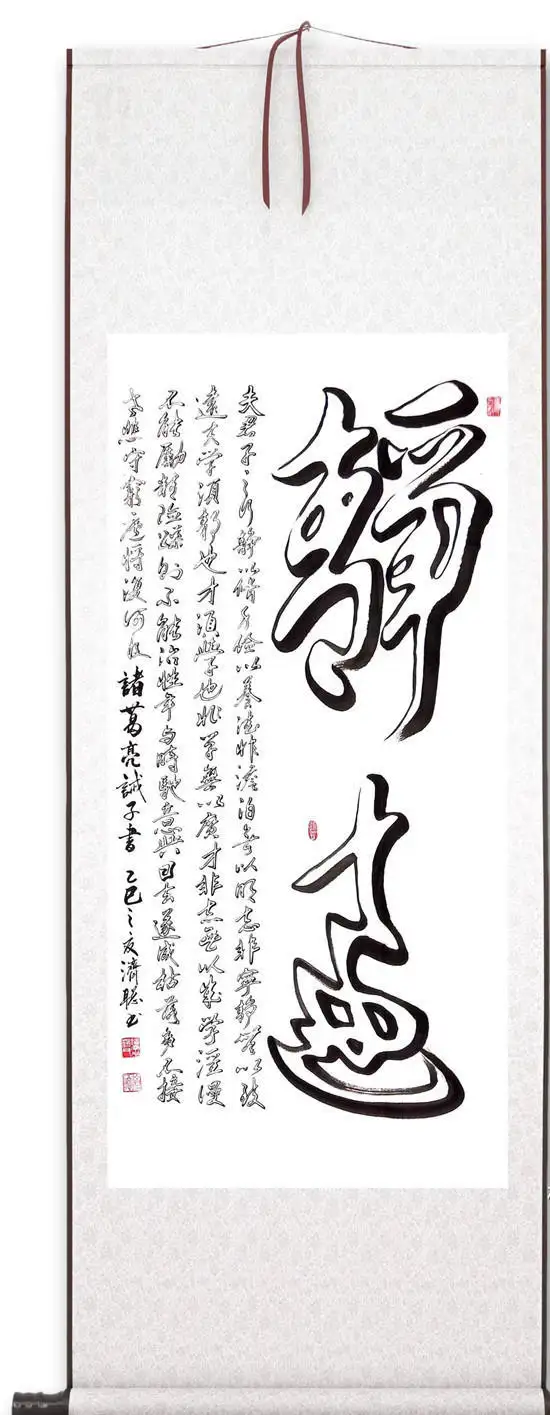 靜遠
夫君子之行靜以修身儉以養德非澹泊無以明志非寧靜無以致
遠夫学須靜也才須學也非学無以廣才非志無以成学滛漫
不能勵精險躁則不能治性年与時馳意與日去遂成枯落多不接
世悲守窮廬將復何及 諸葛亮誡子書 乙巳之夏濟聪书